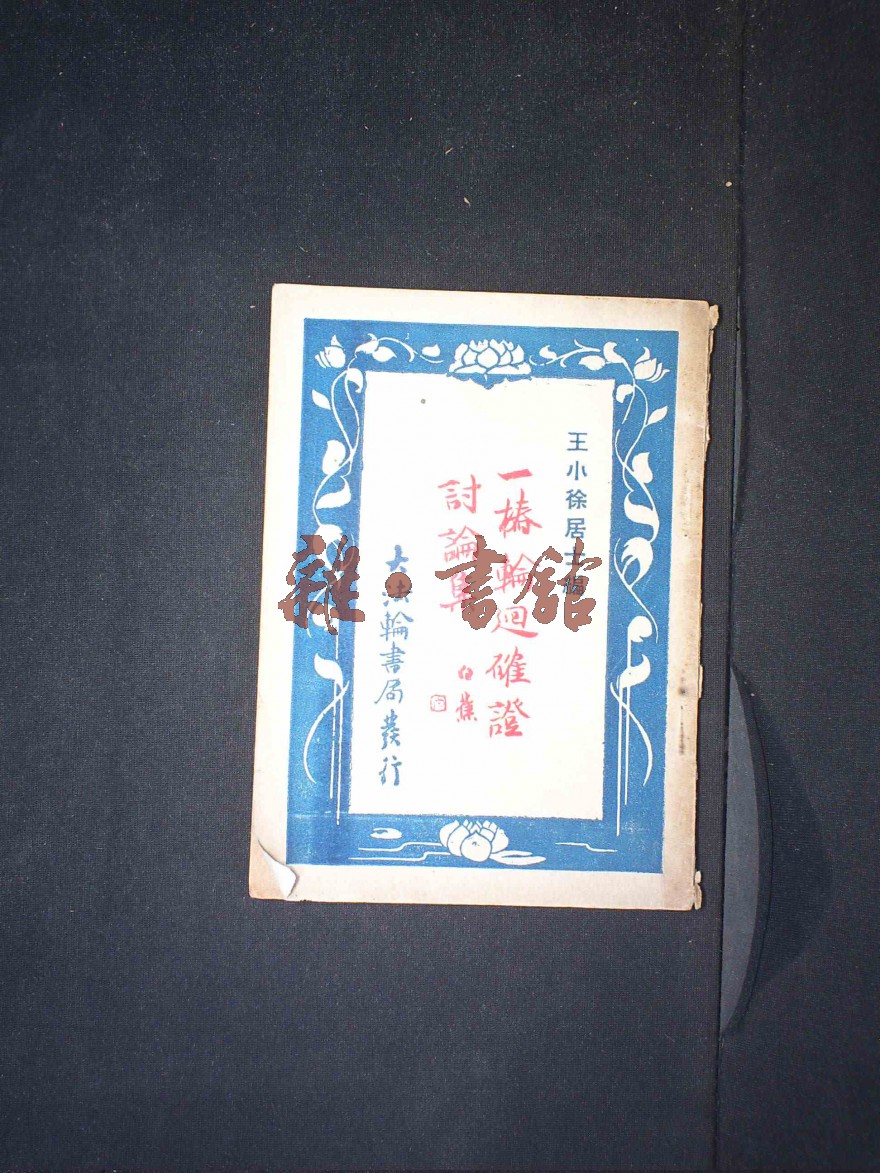 王小徐居士撰
一樁輪迴確證
討論集
白蕉
大法輪書局發行
雜·書館